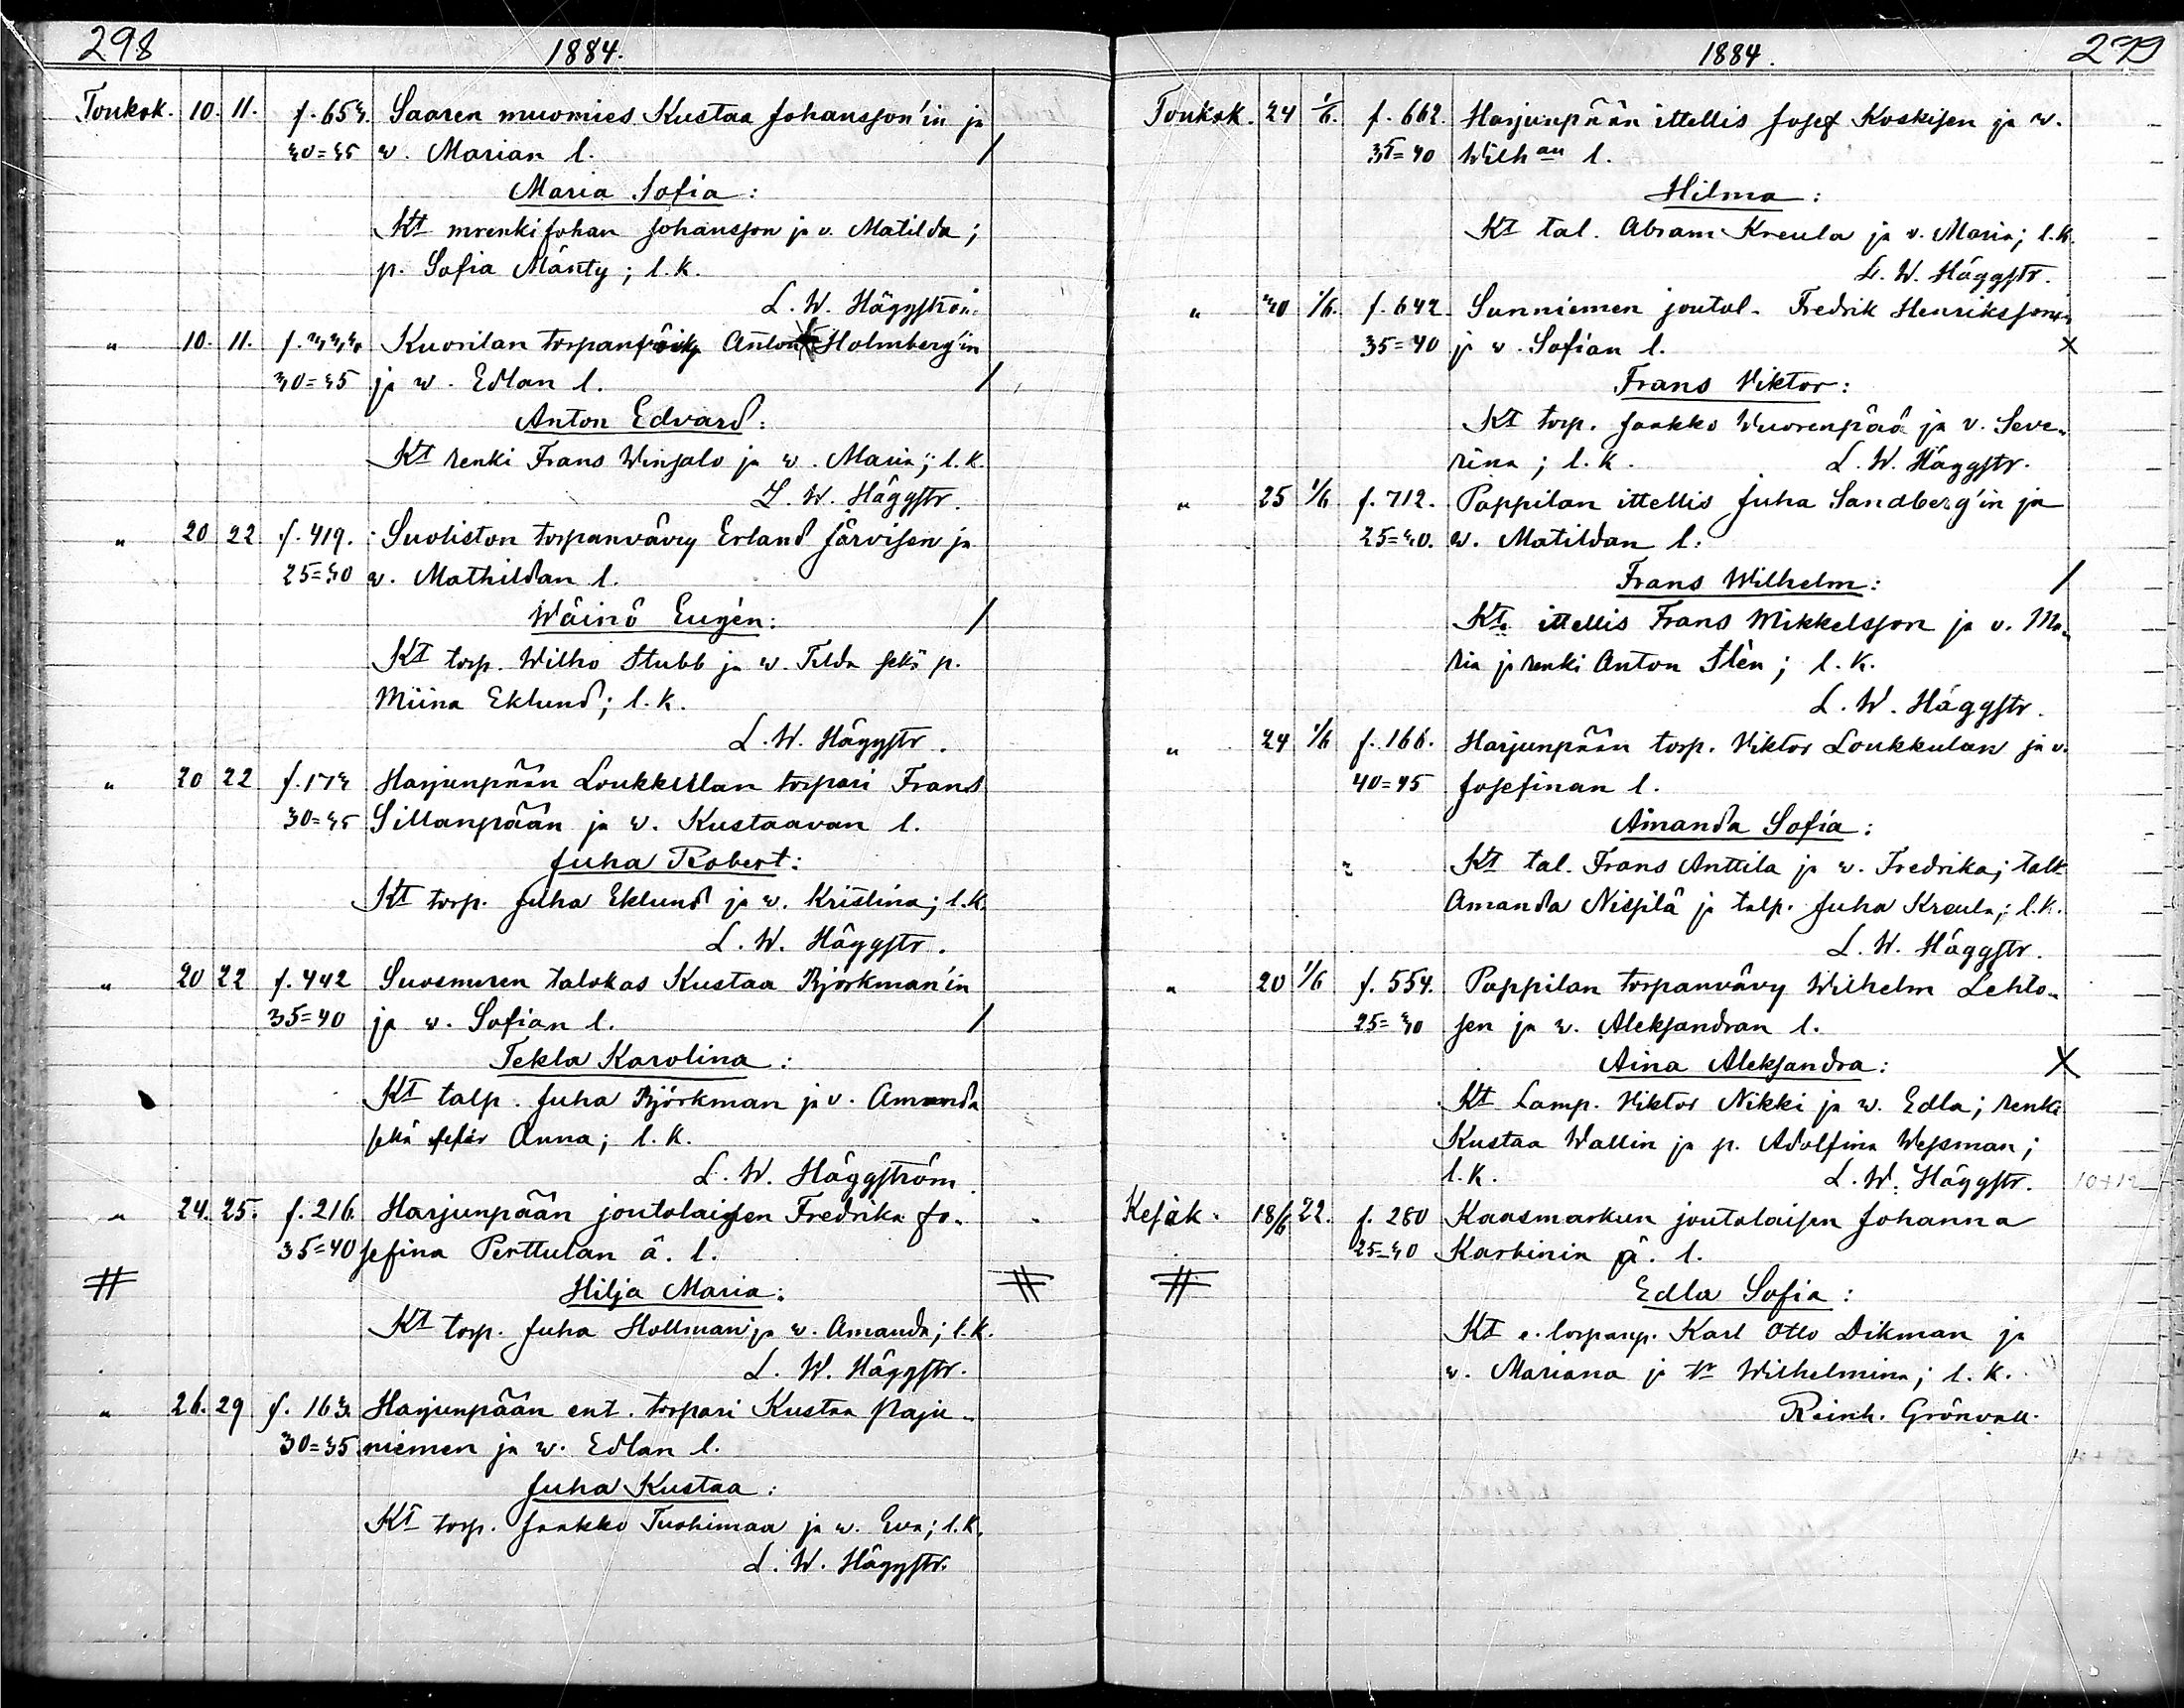 298
1884.
Toukok. 10. 11. f. 653. Saaren muomies Kustaa Johansson'in ja
30=35 w. Marian l. /
Maria Sofia:
Kt mrenki Johan Johansson ja v. Matilda;
p. Sofia Mänty; l.k.
L. W. Häggström.
" 10. 11. f. 333. Kuorilan torpan Anton Holmberg'in
30=35 ja w. Edlan l. /
Anton Edvard:
Kt renki Frans Winsalo ja w. Maria; l.k.
L. W. Häggstr.
" 20 22 f. 419. Suoliston torpanvävy Erland Järvisen ja
25=30 w. Mathildan l.
Wäinö Eugén: /
Kt torp. Wilho Stubb ja w. Tilda sekä p.
Miina Eklund; l.k.
L. W. Häggstr.
" 20 22 f. 173 Harjunpään Loukkulan torpari Frans
30=35 Sillanpään ja w. Kustaavan l.
Juha Robert:
Kt torp. Juha Eklund ja w. Kristina; l.k.
L. W. Häggstr.
" 20 22 f. 442 Suosmeren talokas Kustaa Björkman'in
35=40 ja w. Sofian l. /
Tekla Karolina:
Kt talp. Juha Björkman ja v. Amanda
sekä Anna; l.k.
L. W. Häggström.
" 24. 25. f. 216 Harjunpään joutolaisen Fredrika Jo-
35=40 sefina Perttulan ä. l.
# Hilja Maria: #
Kt torp. Juha Hollman ja w. Amanda; l.k.
L. W. Häggstr.
" 26. 29 f. 163. Harjunpään ent. torpari Kustaa Paju-
30=35 niemen ja w. Edlan l.
Juha Kustaa:
Kt torp. Jaakko Tuohimaa ja w. Eva; l.k.
L. W. Häggstr.
1884.
279
Toukok. 24 1/6. f. 662. Harjunpään ittellis Josef Koskisen ja w.
35=40 Wilhan l.
Hilma:
Kt tal. Abram Kreula ja v. Maria; l.k.
L. W. Häggstr.
" 30 1/6. f. 642. Sunniemen joutol. Fredrik Henriksson'in
35=40 ja w. Sofian l. x
Frans Viktor:
Kt torp. Jaakko Wuorenpää ja v. Seve-
rina; l.k. L. W. Häggstr.
" 25 1/6 f. 712. Pappilan ittellis Juha Sandberg'in ja
25=30. w. Matildan l.
Frans Wilhelm: /
Kt. ittellis Frans Mikkelsson ja v. Ma-
ria ja renki Anton Stén; l.k.
L. W. Häggstr.
" 24 1/6 f. 166. Harjunpään torp. Viktor Loukkulan ja v.
40=45 Josefinan l.
Amanda Sofia:
Kt tal. Frans Anttila ja w. Fredrika; talt.
Amanda Nispilä ja talp. Juha Kreula; l.k.
L. W. Häggstr.
" 20 1/6 f. 554. Pappilan torpanvävy Wilhelm Lehto-
25=30 sen ja w. Aleksandran l.
Aina Aleksandra: X
Kt Lamp. Viktor Nikki ja w. Edla; renki
Kustaa Wallin ja p. Adolfina Wessman;
l.k. L. W. Häggstr.
Kesäk. 18/6 22. f. 280 Kaasmarkun joutolaisen Johanna
25=30 Karhinin ä. l.
# Edla Sofia:
Kt e. torpanp. Karl Otto Dikman ja
w. Mariana ja Wilhelmina; l.k.
Reinh. Grönvall.